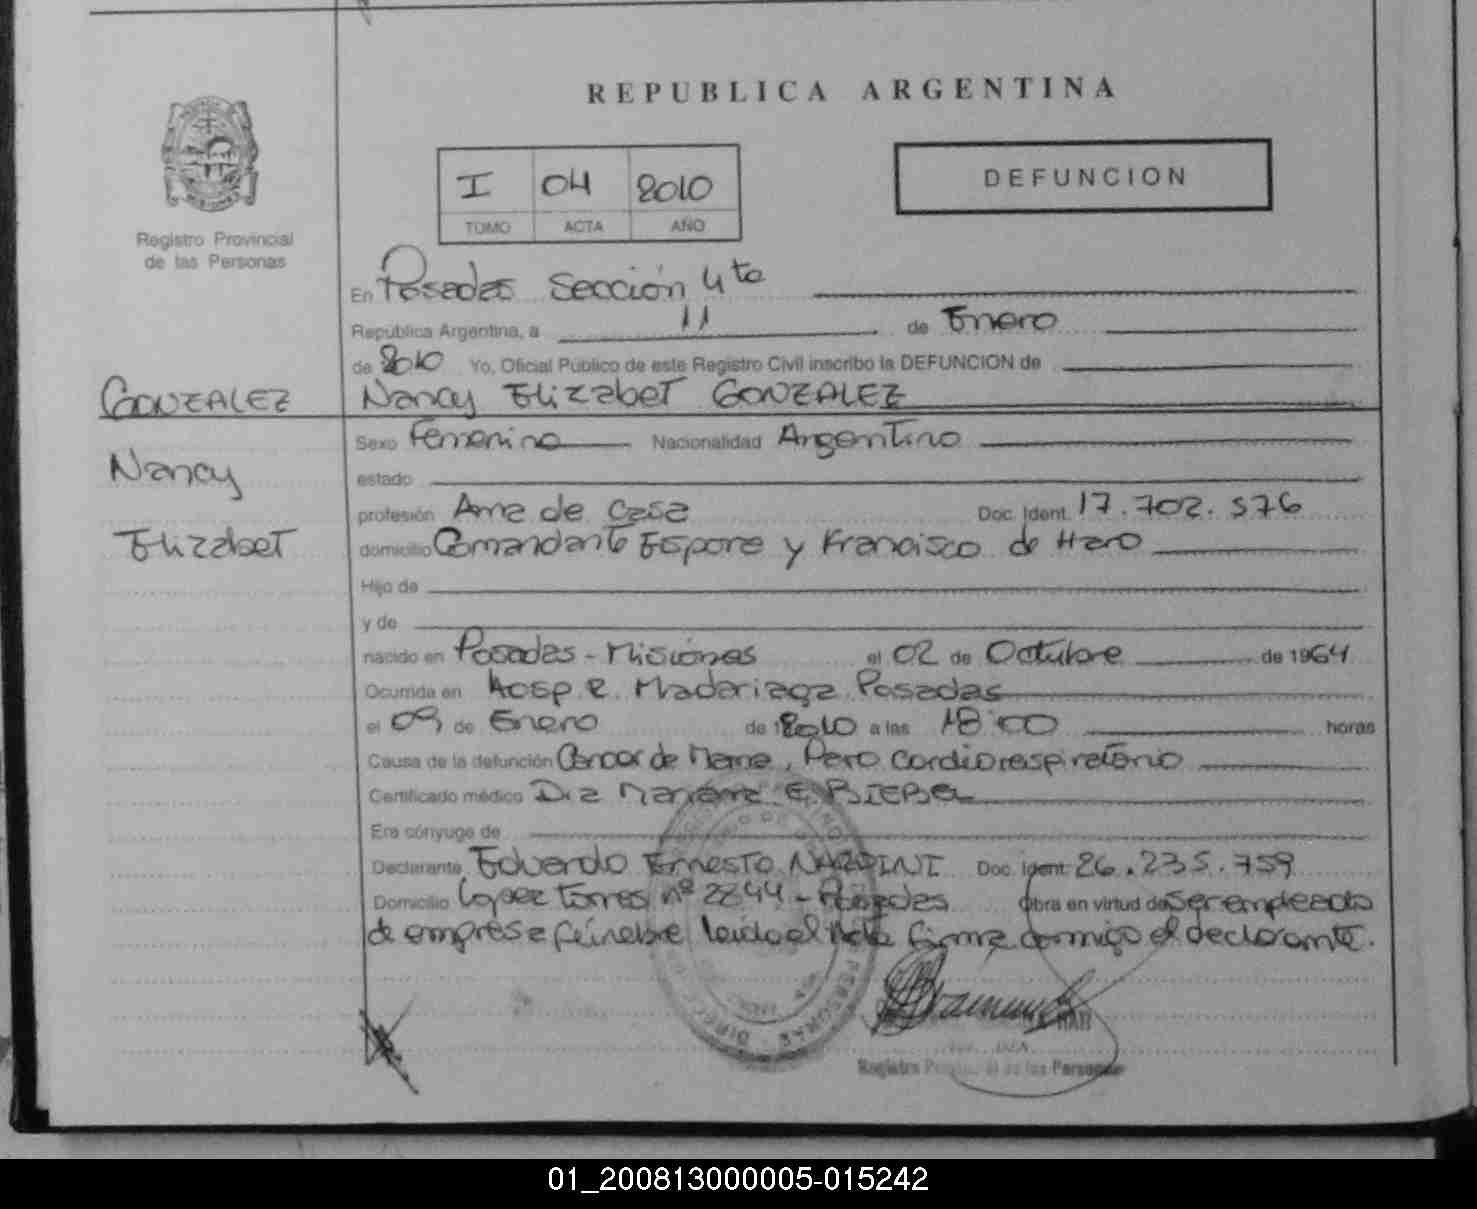 REPUBLICA ARGENTINA
I 04 2010
TOMO ACTA AÑO
DEFUNCION
Registro Provincial
de las Personas
En Posadas Sección 4ta
República Argentina, a 11 de Enero
de 2010 Yo, Oficial Público de este Registro Civil inscribo la DEFUNCION de
GONZALEZ
Nancy Elizabet GONZALEZ
Sexo Femenino Nacionalidad Argentino
Nancy
estado
profesión Ama de casa Doc. Ident. 17.702.576
Elizabet
domicilio Comandante Espora y Francisco de Haro
Hijo de
y de
nacido en Posadas - Misiones el 02 de Octubre de 1964
Ocurrida en Hosp R. Madariaga Posadas
el 09 de Enero de 2010 a las 18:00 horas
Causa de la defunción Cancer de Mama, Paro cardiorespiratorio
Certificado médico Dra Mariana E.
Era cónyuge de
Declarante Eduardo Ernesto NARDINI Doc. Ident. 26.235.759
Domicilio Lopez Torres nº 2844 - Posadas Obra en virtud de ser empleado
de empresa fúnebre leida el Acta firma conmigo el declarante.
Registro de las Personas
01_200813000005-015242